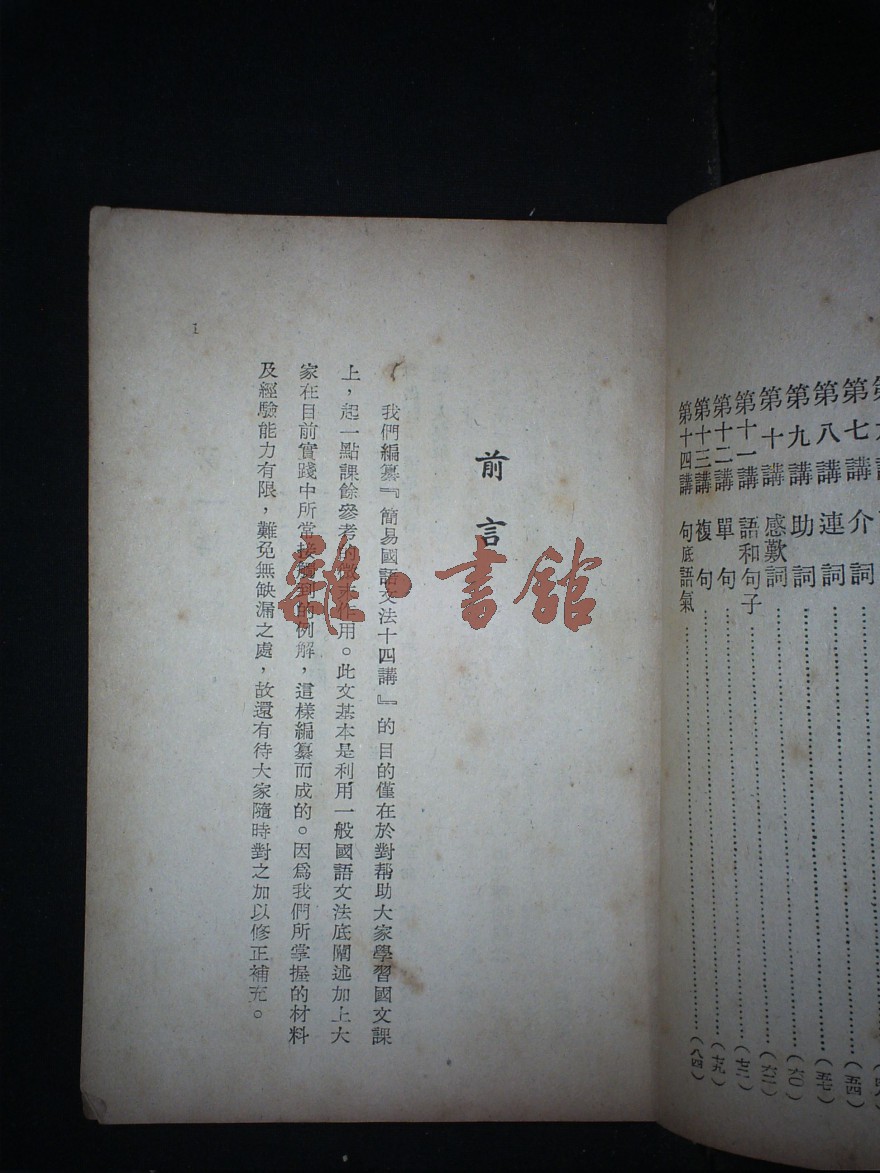 第七講 介詞
第八講 連詞……(五四)
第九講 助詞……(五七)
第十講 感歎詞……(六〇)
第十一講 語和句子……(六二)
第十二講 單句……(七二)
第十三講 複句……(七九)
第十四講 句底語氣……(八四)
前言
我們編纂『簡易國語文法十四講』的目的僅在於對幫助大家學習國文課
上，起一點課餘參考的微末作用。此文基本是利用一般國語文法底闡述加上大
家在目前實踐中所常接觸到的例解，這樣編纂而成的。因爲我們所掌握的材料
及經驗能力有限，難免無缺漏之處，故還有待大家隨時對之加以修正補充。
1
雜·書館